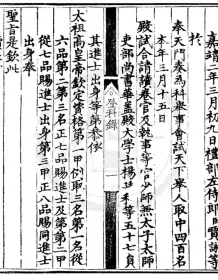 嘉靖二年三月初九日禮部左侍郎
奉天門奏爲科舉事會試天下舉人取中四百名
本年三月十五日
殿試合請讀卷官及執事等官少師兼太子太師
吏部尚書華蓋殿大學士楊廷和等五十七員
其進士出身等第恭依
太祖高皇帝欽定資格第一甲例取三名第一名從
六品第二第三名正七品賜進士及第第二甲
從七品賜進士出身第三甲正八品賜同進士
出身奉
聖旨是欽此
登科錄